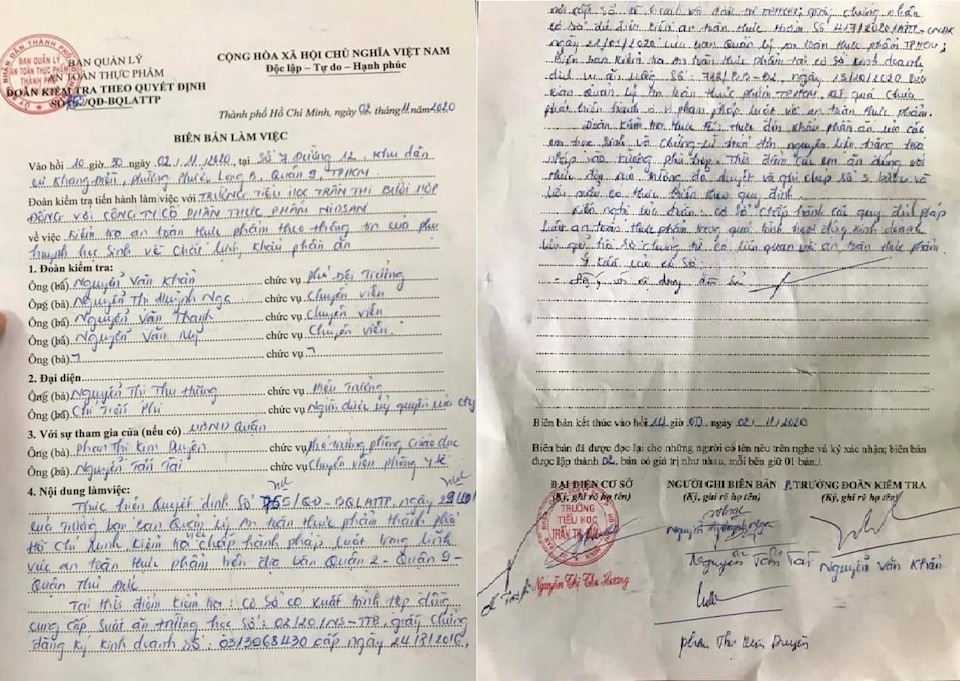 BAN QUẢN LÝ
AN TOÀN THỰC PHẨM
ĐOÀN KIỂM TRA THEO QUYẾT ĐỊNH
SỐ /QĐ-BQLATTP
CỘNG HÒA XÃ HỘI CHỦ NGHĨA VIỆT NAM
Độc lập – Tự do – Hạnh phúc
Thành phố Hồ Chí Minh, ngày 02 tháng 11 năm 2020
BIÊN BẢN LÀM VIỆC
Vào hồi 10 giờ 30 ngày 02/11/2020, tại Số 7 Đường 12, Khu dân
cư Khang Điền, phường Phước Long B, Quận 9, TPHCM
Đoàn kiểm tra tiến hành làm việc với TRƯỜNG TIỂU HỌC TRẦN THỊ BƯỞI HỢP
ĐỒNG VỚI CÔNG TY CỔ PHẦN THỰC PHẨM NIDSAN
về việc Kiểm tra an toàn thực phẩm theo thông tin của phụ
huynh học sinh về chất lượng khẩu phần ăn
1. Đoàn kiểm tra:
Ông (bà) Nguyễn Văn Khản chức vụ Phó Đội Trưởng
Ông (bà) Nguyễn Thị Huỳnh Nga chức vụ chuyên viên
Ông (bà) Nguyễn Văn Thanh chức vụ chuyên viên
Ông (bà) Nguyễn Văn Mỹ chức vụ chuyên viên
Ông (bà) chức vụ
2. Đại diện
Ông (bà) Nguyễn Thị Thu Hương chức vụ Hiệu Trưởng
Ông (bà) Phú chức vụ Người được ủy quyền của cty
3. Với sự tham gia của (nếu có) UBND Quận
Ông (bà) Phan Thị Kim Duyên chức vụ Phó trưởng phòng Giáo dục
Ông (bà) Nguyễn Tấn Tài chức vụ Chuyên viên phòng y tế
4. Nội dung làm việc:
Thực hiện Quyết định Số 755/QĐ-BQLATTP, ngày
của Trưởng ban Ban Quản lý An toàn thực phẩm thành phố
Hồ Chí Minh kiểm tra việc chấp hành pháp luật trong lĩnh
vực an toàn thực phẩm trên địa bàn Quận 2 - Quận 9 -
Quận Thủ Đức
Tại thời điểm kiểm tra: Cơ Sở có xuất trình hợp đồng
cung cấp suất ăn trường học Số: 02/20/NS-TTB, giấy chứng
đăng ký kinh doanh Số: 0313968430 cấp ngày 24/8/2016,
cơ sở đủ điều kiện an toàn thực phẩm
ngày của Ban Quản lý An toàn thực phẩm TPHCM;
Biên bản kiểm tra an toàn thực phẩm tại cơ sở kinh doanh
dịch vụ ăn uống Số: ngày 13/10/2020 của
Ban Quản lý An toàn thực phẩm TPHCM, kết quả chưa
phát hiện hành vi vi phạm pháp luật về an toàn thực phẩm.
Đoàn kiểm tra thực tế: thực đơn khẩu phần ăn của các
em học sinh và chứng từ hoá đơn nguyên liệu hàng hoá
nhập vào tương phù hợp. Thời điểm các em ăn đúng với
thực đơn nhà trường đã duyệt và ghi chép sổ 3 bước và
lưu mẫu có thực hiện theo quy định.
Kiến nghị của đoàn: cơ sở chấp hành các quy định pháp
luật an toàn thực phẩm trong quá trình hoạt động kinh doanh
lưu giữ hồ sơ chứng từ có liên quan về an toàn thực phẩm
Ý kiến của cơ sở:
- Đồng ý với nội dung biên bản
Biên bản kết thúc vào hồi 14 giờ 00, ngày 02/11/2020
Biên bản đã được đọc lại cho những người có tên nêu trên nghe và ký xác nhận; biên bản
được lập thành 02 bản có giá trị như nhau, mỗi bên giữ 01 bản./.
ĐẠI DIỆN CƠ SỞ
(Ký, ghi rõ họ tên)
NGƯỜI GHI BIÊN BẢN
(Ký, ghi rõ họ tên)
P. TRƯỞNG ĐOÀN KIỂM TRA
(Ký, ghi rõ họ tên)
TRƯỜNG
TIỂU HỌC
TRẦN THỊ BƯỞI
Nguyễn Thị Thu Hương
Nguyễn Tấn Tài
Nguyễn Văn Khản
Phan Thị Kim Duyên